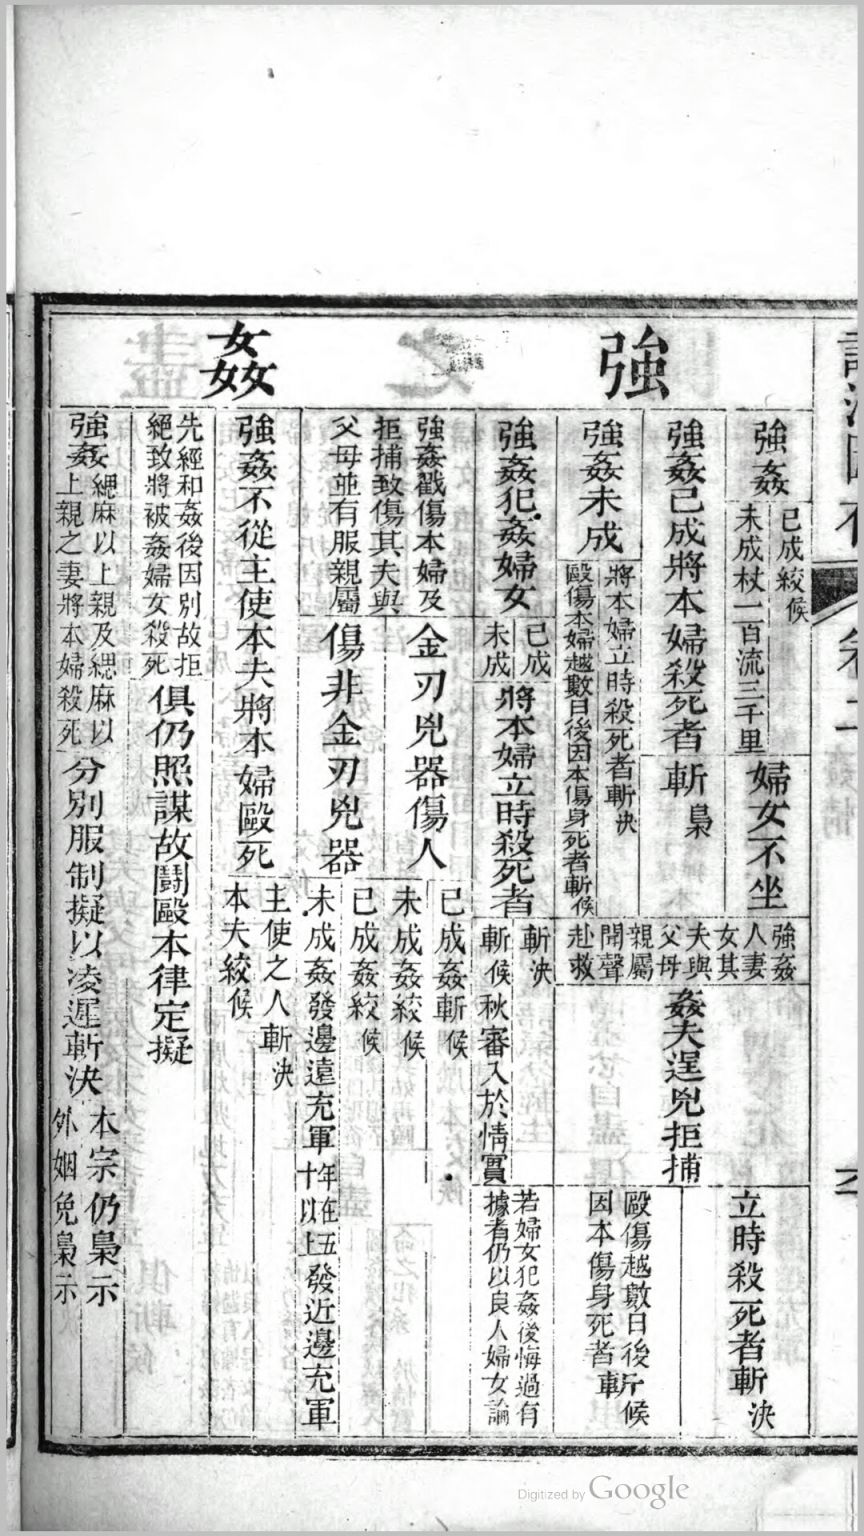 強姦
強姦
已成絞候
未成杖一百流三千里
婦女不坐
強姦已成將本婦殺死者
斬梟
強姦未成
將本婦立時殺死者斬決
毆傷本婦越數日後因本傷身死者斬候
強姦
人妻
女其
夫與
父母
親屬
聞聲
赴救
姦夫逞兇拒捕
立時殺死者斬決
毆傷越數日後
因本傷身死者斬候
強姦犯姦婦女
已成
未成
將本婦立時殺死者
斬決
斬候秋審入於情實
若婦女犯姦後悔過有
據者仍以良人婦女論
強姦戳傷本婦及
拒捕致傷其夫與
父母並有服親屬
金刃兇器傷人
已成姦斬候
未成姦絞候
傷非金刃兇器
已成姦絞候
未成姦發邊遠充軍
年在五
十以上
發近邊充軍
強姦不從主使本夫將本婦毆死
主使之人斬決
本夫絞候
先經和姦後因別故拒
絕致將被姦婦女殺死
俱仍照謀故鬪毆本律定擬
強姦
緦麻以上親及緦麻以
上親之妻將本婦殺死
分別服制擬以凌遲斬決
本宗仍梟示
外姻免梟示
Digitized by Google